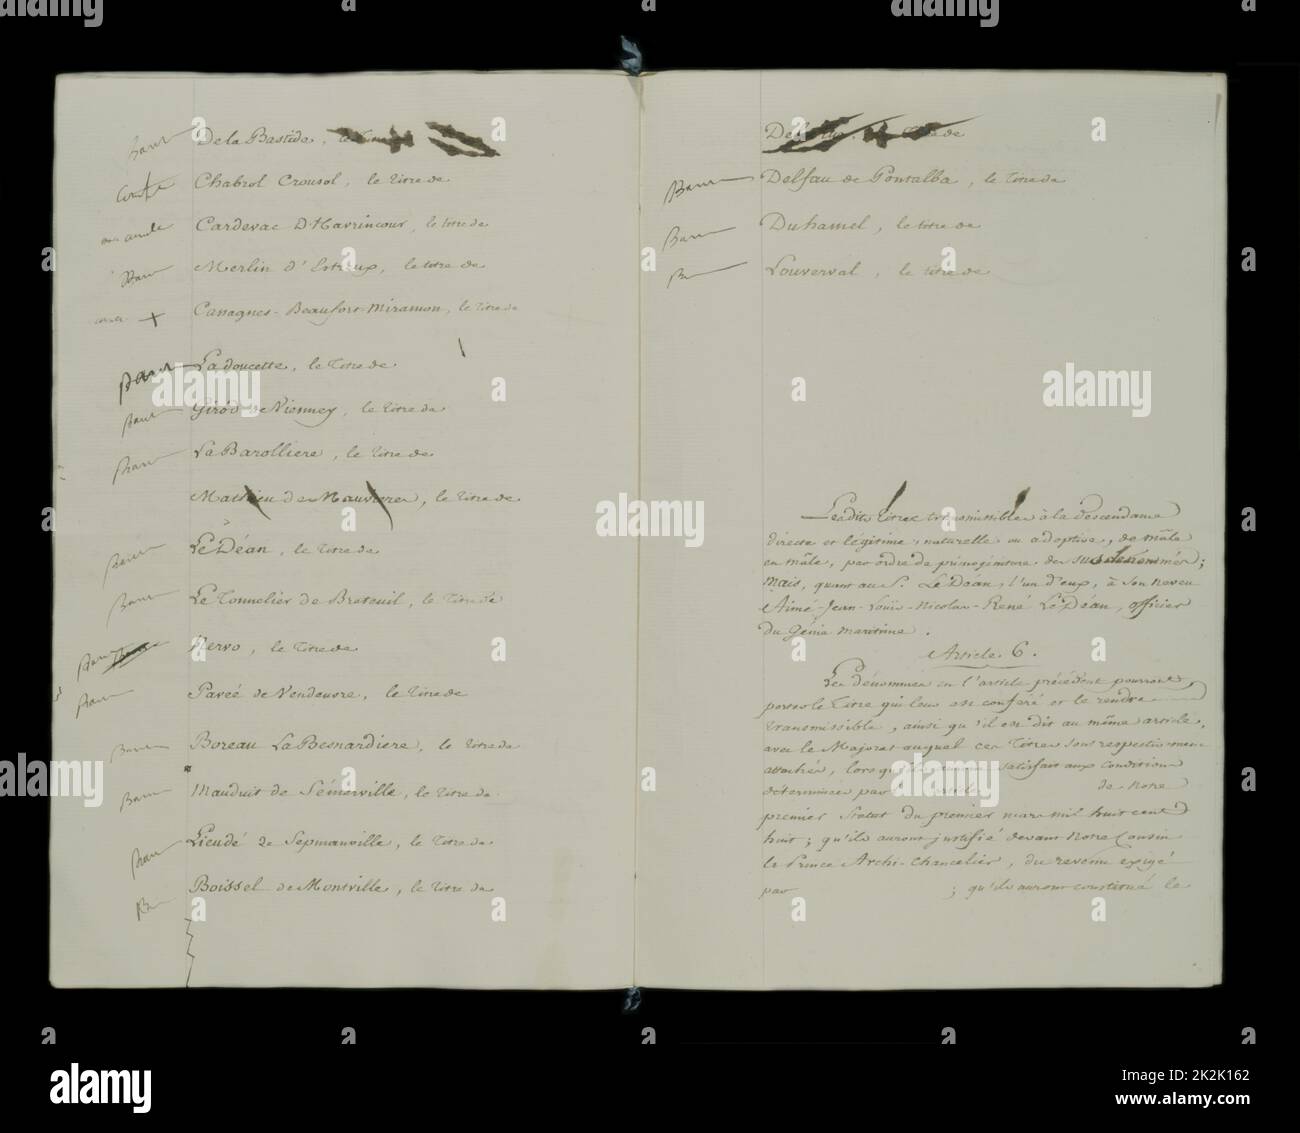 Baron De la Bastide, le titre de
Comte Chabrol Crousol, le titre de
Cardevac D'Havrincour, le titre de
Baron Merlin d'Estreux, le titre de
Cassagnes-Beaufort-Miramon, le titre de
Baron La doucette, le titre de
Baron Girod de Vienney, le titre de
Baron La Barolliere, le titre de
Mathieu de Mauvieres, le titre de
Baron Le Déan, le titre de
Baron Le Tonnelier de Breteuil, le titre de
Baron Nervo, le titre de
Baron Pavée de Vendeuvre, le titre de
Baron Boreau La Besnardiere, le titre de
Baron Mauduit de Sémerville, le titre de
Baron Lieudé de Sepmanville, le titre de
Boissel de Montville, le titre de
titre de
Baron Delfau de Pontalba, le titre de
Baron Duhamel, le titre de
Louverval, le titre de
Lesdits titres transmissibles à la descendance
directe et légitime, naturelle ou adoptive, de mâle
en mâle, par ordre de primogéniture des susdénommés;
mais, quant au S. Le Déan, l'un d'eux, à son neveu
Aimé-Jean-Louis-Nicolas-René Le Déan, officier
du Génie maritime.
Article 6.
Les dénommés en l'article précédent pourront
porter le titre qui leur est conféré et le rendre
transmissible, ainsi qu'il est dit au même article,
avec le Majorat auquel ces titres sont respectivement
attachés, lorsqu'ils auront satisfait aux conditions
déterminées par de notre
premier Statut du premier mars mil huit cent
huit; qu'ils auront justifié devant notre Cousin
le Prince Archi-Chancelier, du revenu exigé
par ; qu'ils auront constitué le
alamy
alamy
alamy
Image ID: 2K2K162
www.alamy.com